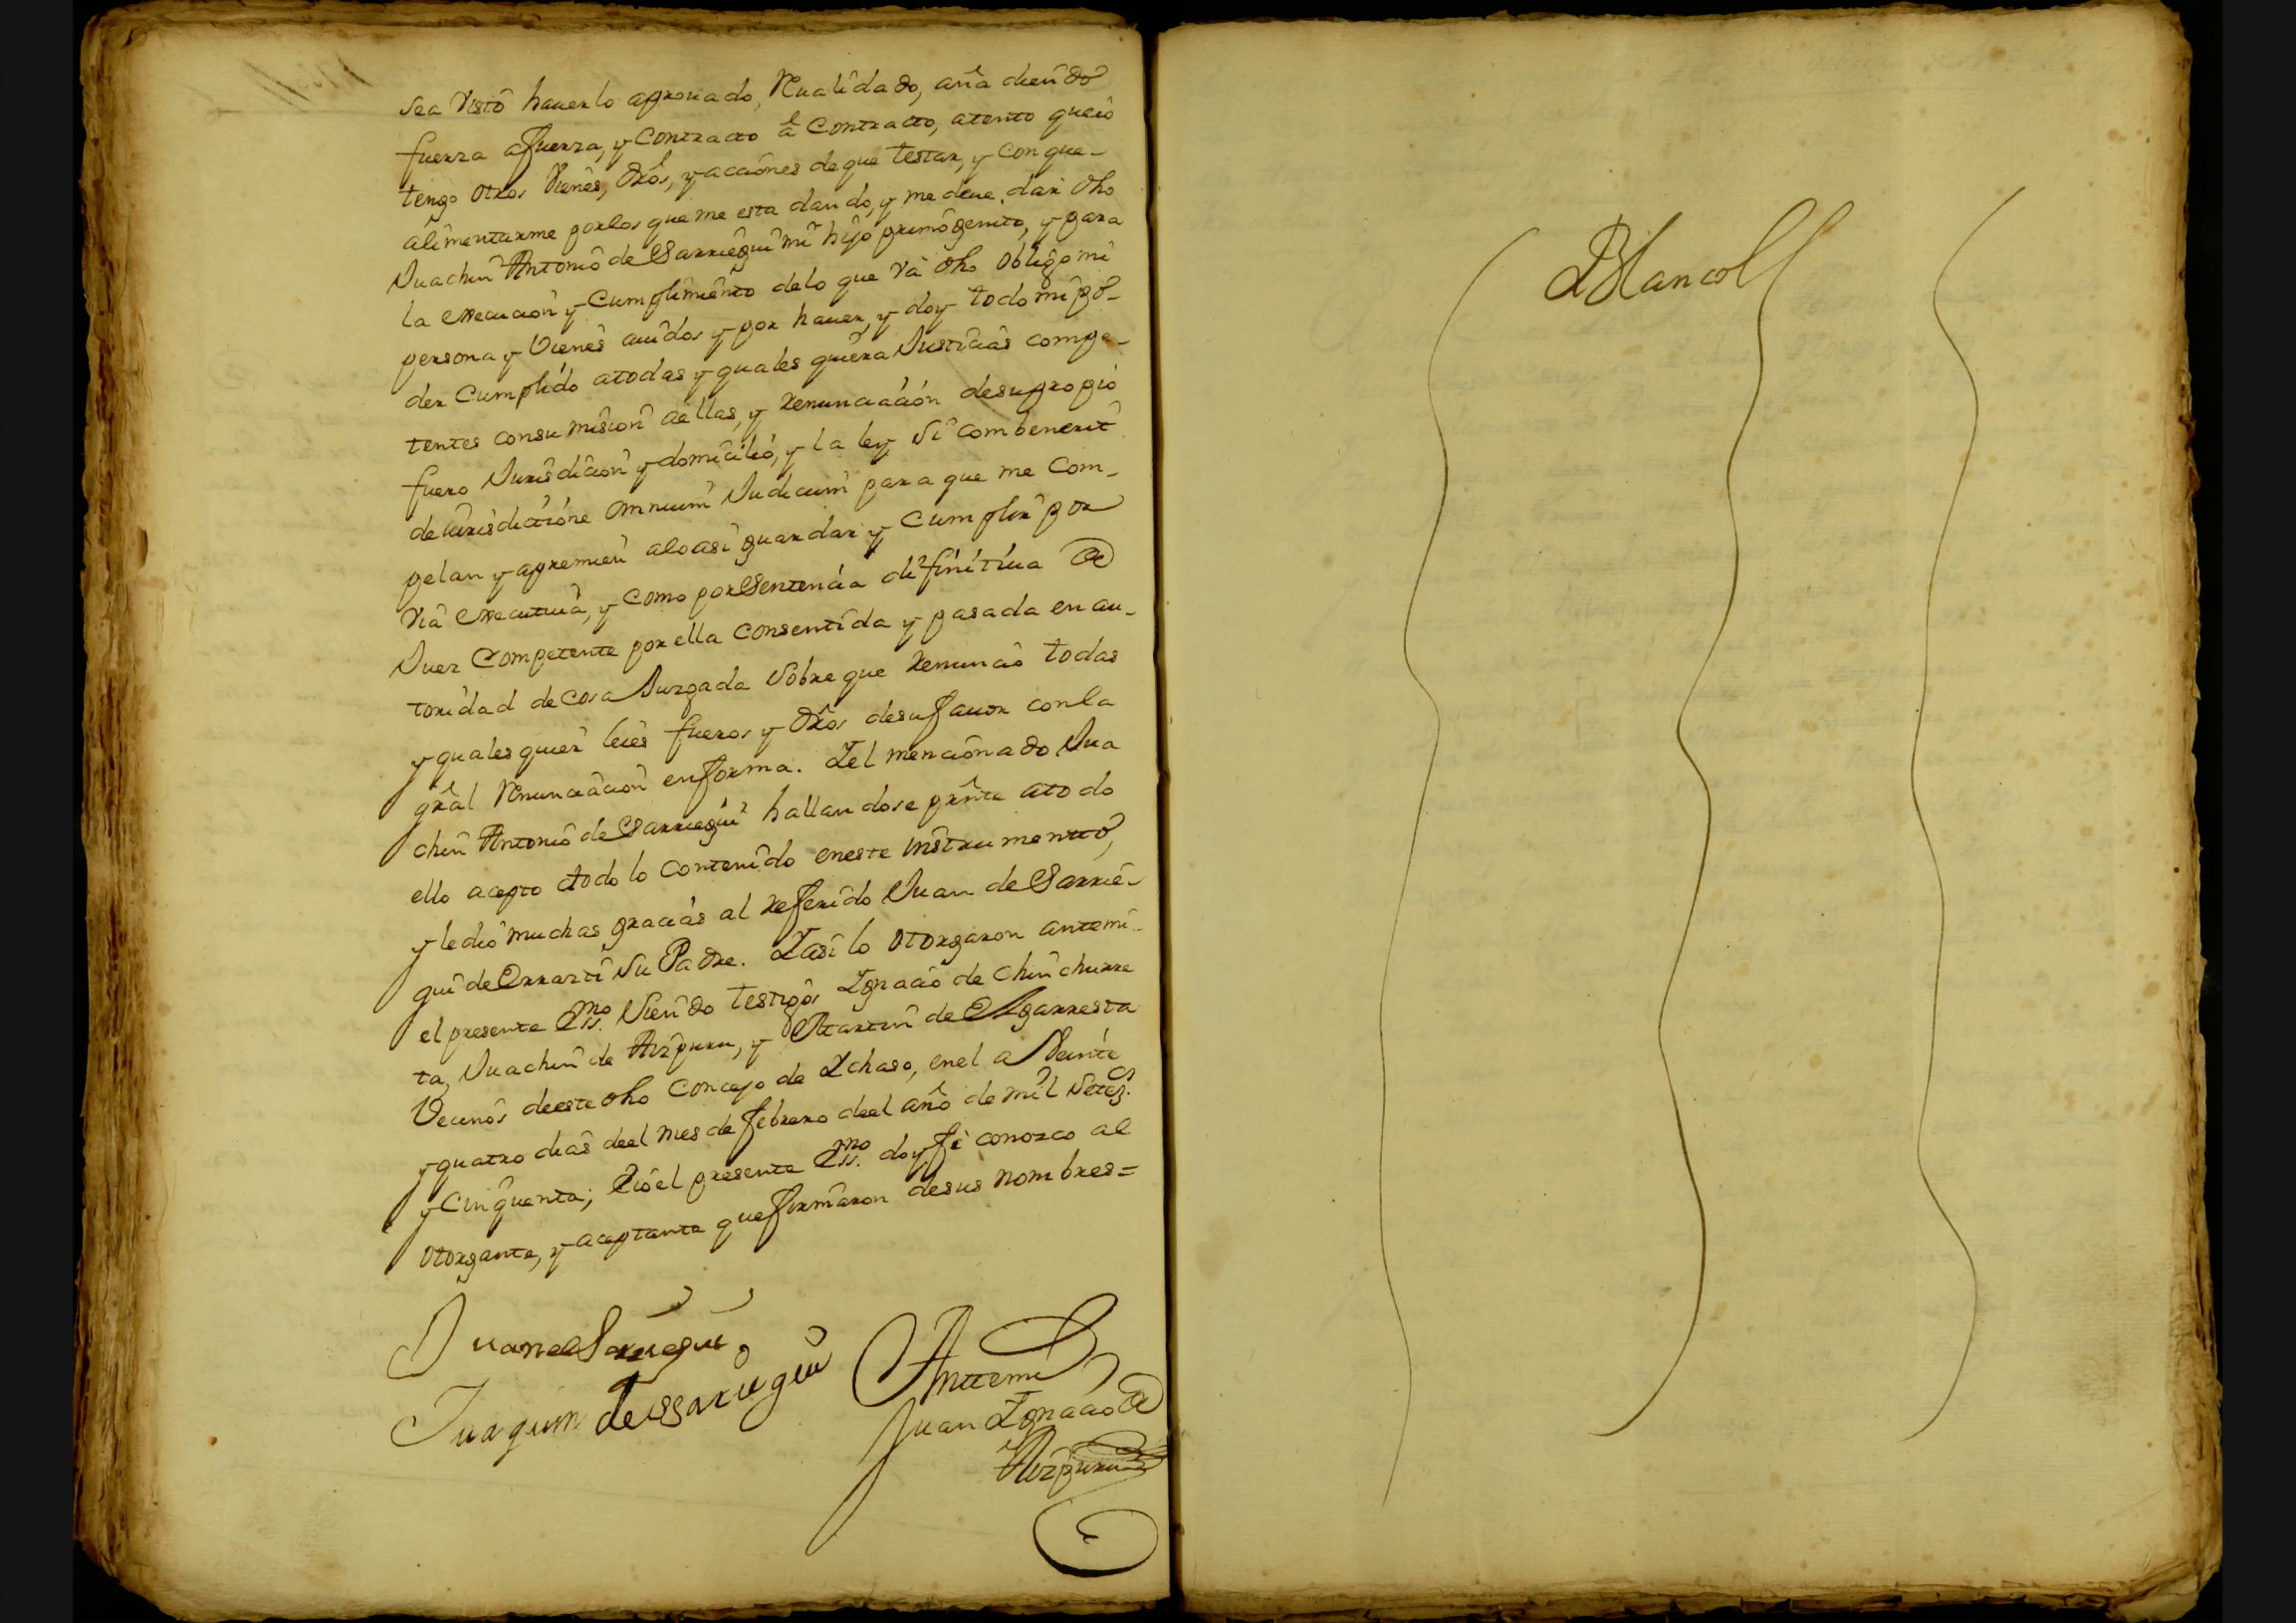 sea visto hauerlo aprouado, Rualidado, aña diendo
fuerza afuerza, y Contracto â Contracto, atento queio
tengo otros vienes, dros, y acciones de que testar, y con que-
alimentarme porlos que me esta dando, y me deue dar dho
Juachin Antonio de Sarriegui mi hijo primogenito, y para
la execucion y Cumplimiento delo que va dho obligo mi
persona y vienes auidos y por hauer, y doy todo mi po-
der Cumplido atodas y quales quiera Justicias compe-
tentes consu mision aellas, y renunciacion desupropio
fuero Jurisdicion y domicilio, y la ley si combenerit
de iurisdictione omnium Judicum para que me Com-
pelan y apremien aloasi guardar y Cumplir por
via executiua, y como porSentencia difinitiua de
Juez Competente por ella Consentida y pasada en au-
toridad de cosa Juzgada sobre que renuncio todas
y qualesquier leies fueros y dros desufauor conla
gral Renunciacion enforma. Yel mencionado Jua
chin Antonio de Sarriegui hallandose prnte atodo
ello acepto todo lo Contenido eneste instrumento,
y ledio muchas gracias al referido Juan de Sarrie-
gui de Errazti su Padre. Yasi lo otorgaron antemi
el presente Essno. siendo testigos Ygnacio de Chinchurre
ta, Juachin de Aizpuru, y Martin de Algarresta
Vecinos deeste dho Concejo de Ychaso, enel a veinte
y quatro dias deel mes de febrero deel año de mil setecos.
y Cinquenta; Eioel presente Essno. doy fe conozco al
otorgante, y aceptante quefirmaron desus nombres=
Juan de Sariegui
Juaquin de ssariegui
Anttemi
Juan Ygnacio de
Aizpuru
Blanco